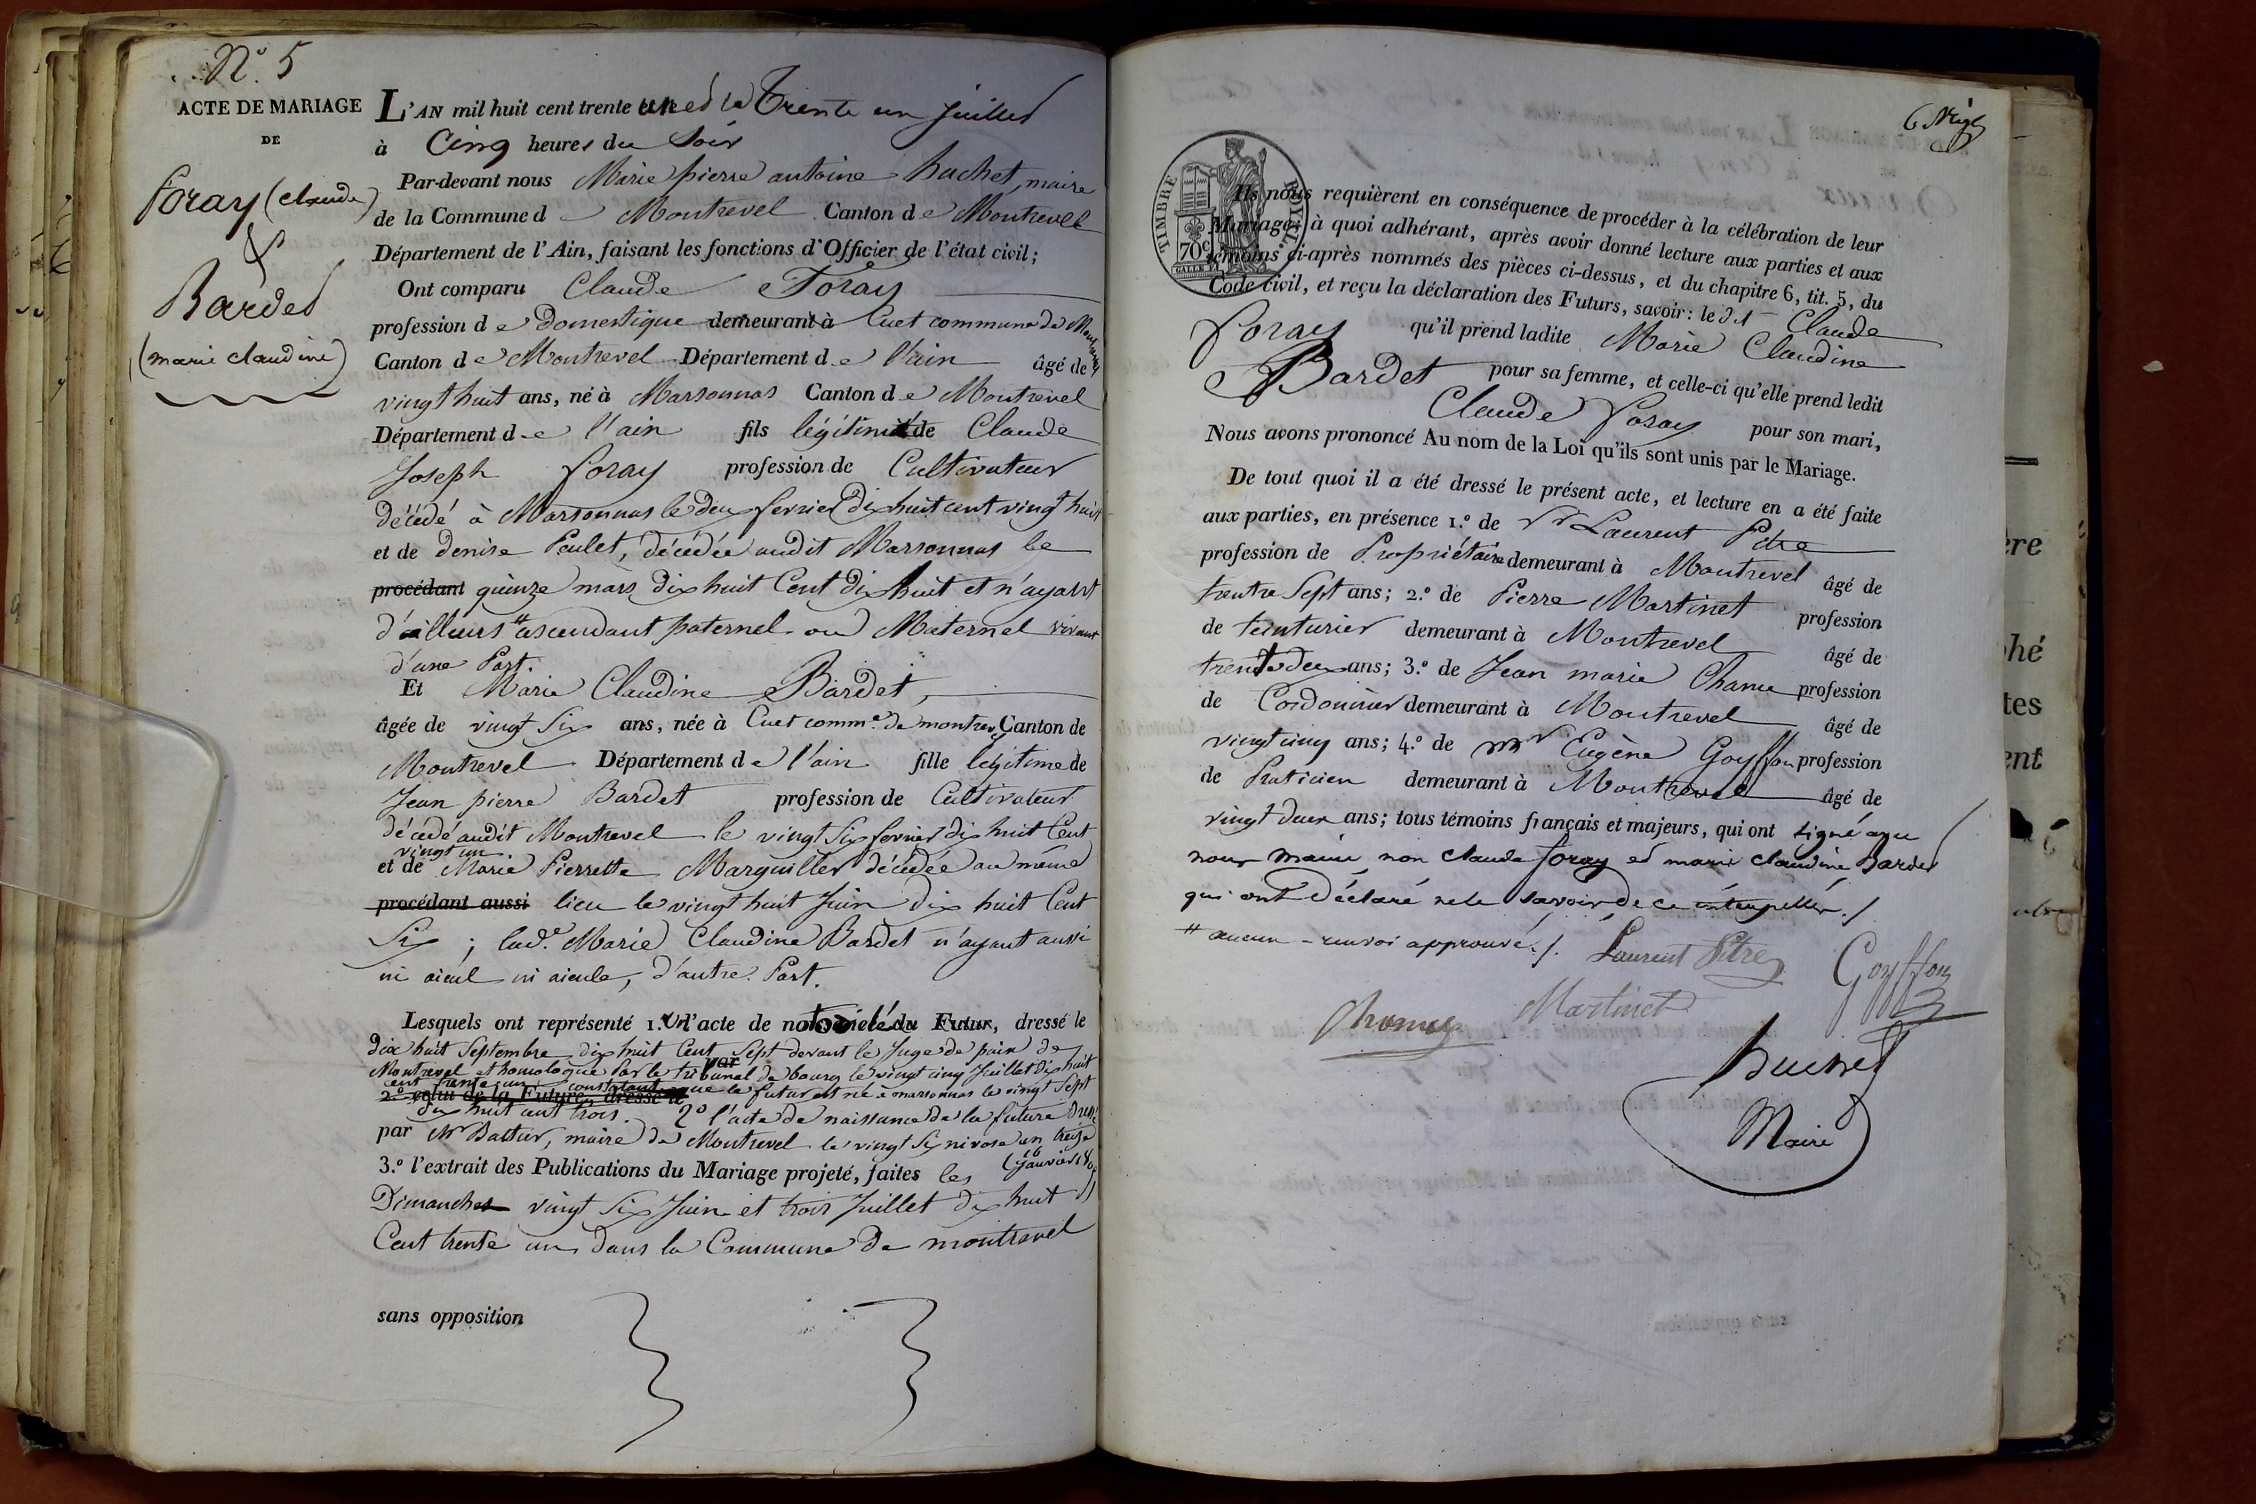 N.o 5
ACTE DE MARIAGE
DE
foray (claude)
&
Bardet
(marie claudine)
L'AN mil huit cent trente un et le Trente un juillet
à Cinq heures du Soir
Par-devant nous Marie pierre antoine huchet, maire
de la Commune de Montrevel Canton de Montrevel
Département de l'Ain, faisant les fonctions d'Officier de l'état civil;
Ont comparu Claude Foray
profession de Domestique demeurant à Cuet commune de Montrevel
Canton de Montrevel Département de l'ain âgé de
vingt huit ans, né à Marsonnas Canton de Montrevel
Département de l'ain fils légitime de Claude
Joseph foray profession de Cultivateur
décédé à Marsonnas le deux fevrier dix huit cent vingt huit
et de denise Peulet, décédée audit Marsonnas le
procédant quinze mars dix huit Cent dix huit et n'ayant
d'ailleurs # ascendant paternel ou Maternel vivant
d'une Part.
Et Marie Claudine Bardet,
âgée de vingt Six ans, née à Cuet comm.e de montrevel Canton de
Montrevel Département de l'ain fille légitime de
Jean pierre Bardet profession de Cultivateur
décédé audit Montrevel le vingt Six fevrier dix huit Cent
vingt un
et de Marie Pierrette Marguiller décédée au même
procédant aussi lieu le vingt huit Juin dix huit Cent
Six ; lad.e Marie Claudine Bardet n'ayant aussi
ni aieul ni aieule, d'autre Part.
Lesquels ont représenté 1.o Un l'acte de notoriété du Futur, dressé le
dix huit Septembre dix huit Cent Sept devant le Juge de paix de
Montrevel et homologué par le tribunal de bourg le vingt cinq Juillet dix huit
cent trente un constatant que le futur est né à marsonnas le vingt Sept
2.o celui de la Future, dressé le
par
dix huit cent trois. 2.o l'acte de naissance de la future dressé
par Mr Battur, maire de Montrevel le vingt Six nivose an treize
3.o l'extrait des Publications du Mariage projeté, faites les (16 janvier 180
Dimanches vingt Six Juin et trois Juillet dix huit
Cent trente un dans la Commune de montrevel
sans opposition
TIMBRE ROYAL
70c
Ils nous requièrent en conséquence de procéder à la célébration de leur
Mariage; à quoi adhérant, après avoir donné lecture aux parties et aux
témoins ci-après nommés des pièces ci-dessus, et du chapitre 6, tit. 5, du
Code civil, et reçu la déclaration des Futurs, savoir: le dit Claude
Foray qu'il prend ladite Marie Claudine
Bardet pour sa femme, et celle-ci qu'elle prend ledit
Claude Foray pour son mari,
Nous avons prononcé Au nom de la Loi qu'ils sont unis par le Mariage.
De tout quoi il a été dressé le présent acte, et lecture en a été faite
aux parties, en présence 1.o de Sr Laurent Pitre
profession de Propriétaire demeurant à Montrevel âgé de
trente Sept ans; 2.o de Pierre Martinet profession
de teinturier demeurant à Montrevel âgé de
trente deux ans; 3.o de Jean marie Chanu profession
de Cordonnier demeurant à Montrevel âgé de
vingt cinq ans; 4.o de Mr Eugène Goyffon profession
de Praticien demeurant à Montrevel âgé de
vingt deux ans; tous témoins français et majeurs, qui ont signé avec
nous maire non claude foray et marie claudine Bardet
qui ont déclaré ne le savoir de ce interpellés ./
# aucun - renvoi approuvé ./. Laurent Pitre Goyffon
Martinet
huchet
Maire